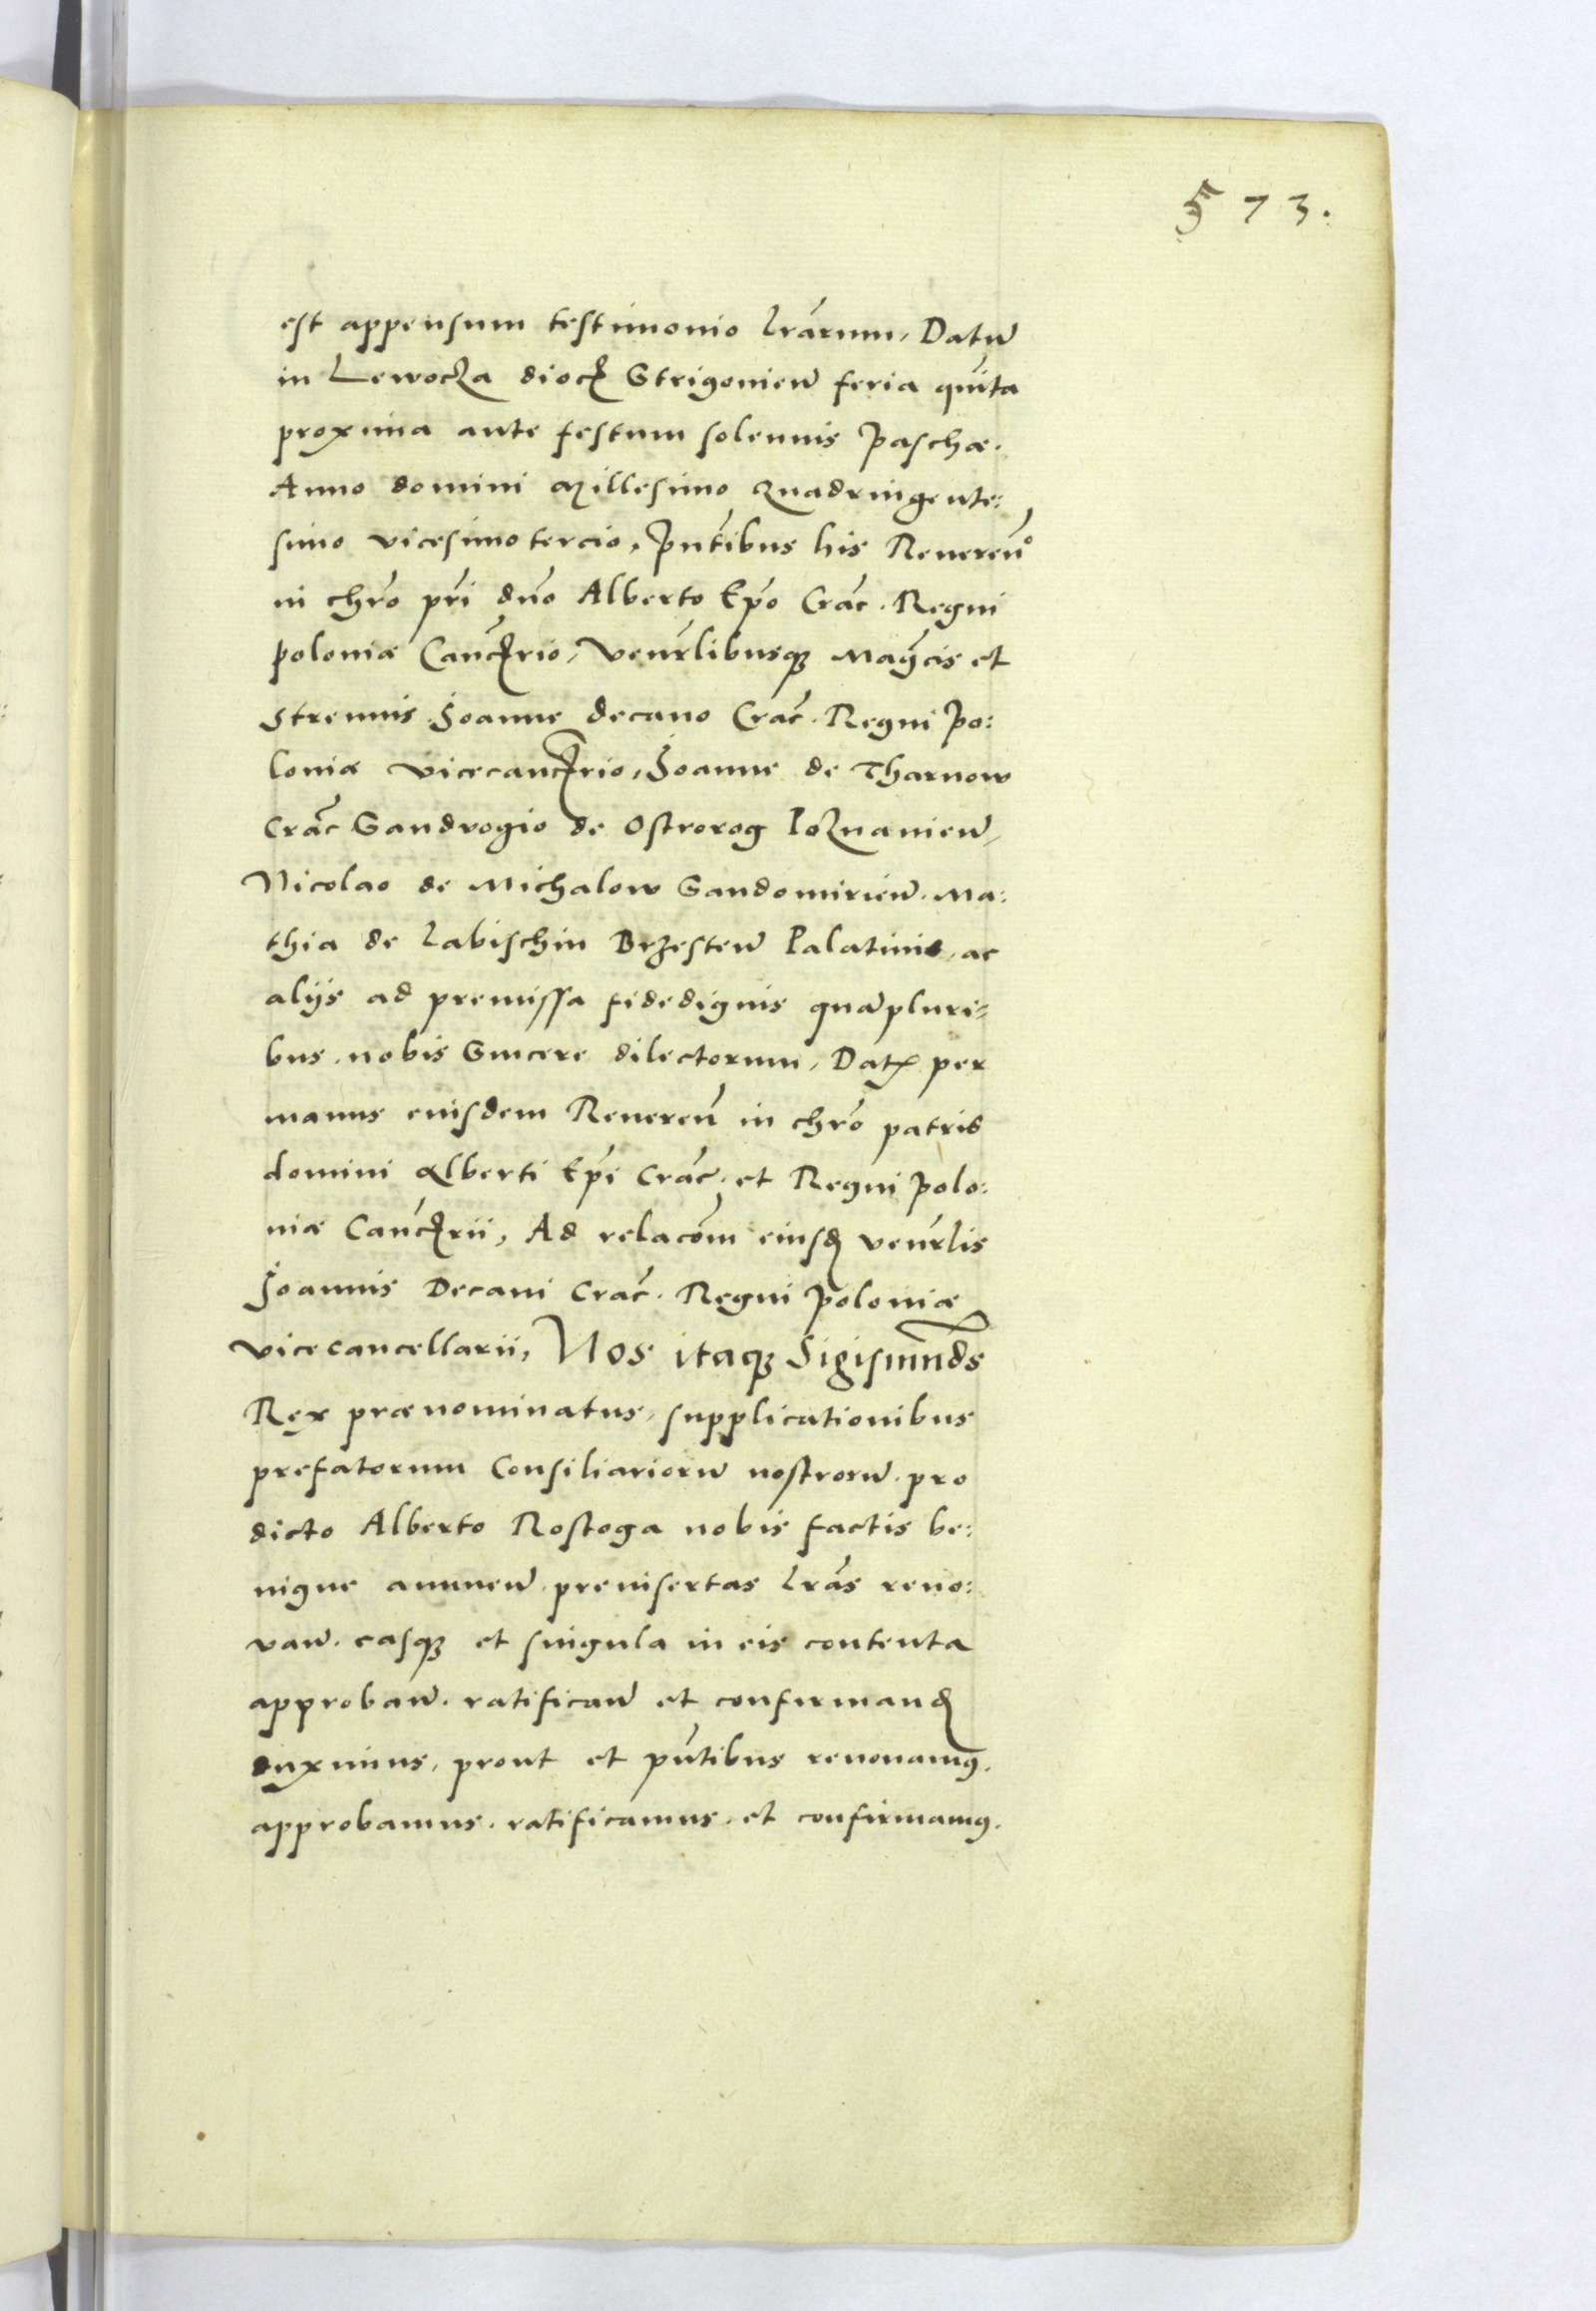 573.
est appensum testimonio l̃rarum, Datum̃
in Lewocza dioc̃ Strigonien̄ feria quĩta
proxima ante festum solennis paschæ.
Anno domini Millesimo Quadringente:
simo vicesimo tercio, p̃ntibus his Reueren̄°
in chr̃o pr̃i dño Alberto Ep̃o Crac̃. Regni
poloniæ Canc̃rio, Vener̃libusq3 Mag̃cis et
Strenuis Joanne decano Crac̃. Regni Po:
loniæ vicecanc̃rio, Joanne de Tharnow
Crac̃ Sandvogio de Ostrorog Poznanien̄,
Nicolao de Michalow Sandomirien̄. Ma:
thia de Labischin Brzesten̄ Palatinis, ac
alijs ad premissa fidedignis quãpluri=
bus. nobis Sincere dilectorum, Datꝭ per
manus eiusdem Reueren̄ in chr̃o patris
domini Alberti Ep̃i Crac̃. et Regni Polo:
niæ Canc̃rii, Ad relac̃om eiusd̃ vener̃lis
Joannis Decani Crac̃. Regni Poloniæ
vicecancellarii, Nos itaq3 Sigismũds
Rex prænominatus, supplicationibus
prefatorum Consiliariorũ nostrorũ. pro
dicto Alberto Rostoga nobis factis be:
nigne annuen̄. preinsertas l̃ras reno:
van̄. easq3 et singula in eis contenta
approban̄. ratifican̄ et confirmand̃
duximus, prout et p̃ntibus renouamꝰ.
approbamus. ratificamus. et confirmamꝰ.